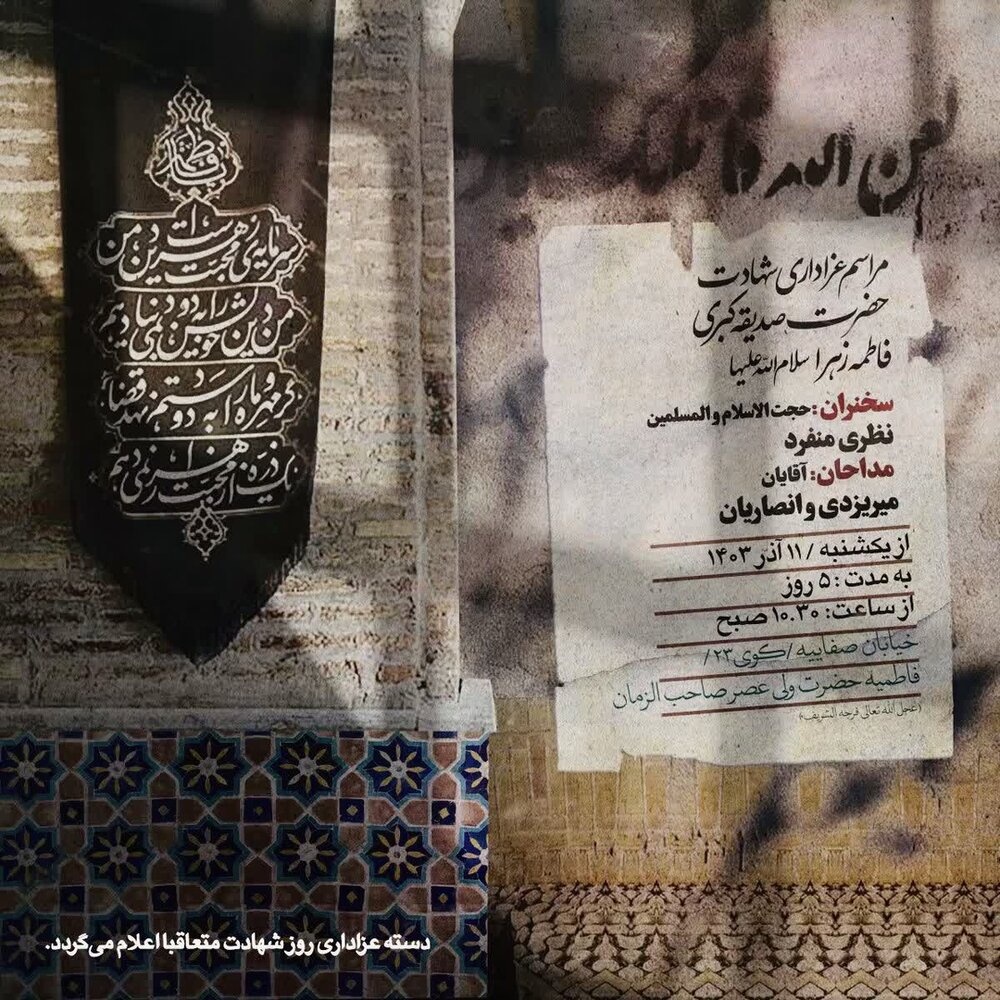 لعن الله قاتلیک
مراسم عزاداری شهادت
حضرت صدیقه کبری
فاطمه زهرا سلام الله علیها
سخنران: حجت الاسلام والمسلمین
نظری منفرد
مداحان: آقایان
میریزدی و انصاریان
از یکشنبه / ۱۱ آذر ۱۴۰۳
به مدت: ۵ روز
از ساعت: ۱۰.۳۰ صبح
خیابان صفاییه / کوی ۲۳/
فاطمیه حضرت ولی عصر صاحب الزمان
(عجل الله تعالی فرجه الشریف)
یا فاطمة
سرمایه‌ی محبت زهراست دین من
من دین خویش را به دو دنیا نمی‌دهم
گر مهر و ماه را به دو دستم نهد قضا
یک ذره از محبت زهرا نمی‌دهم
دسته عزاداری روز شهادت متعاقبا اعلام می‌گردد.